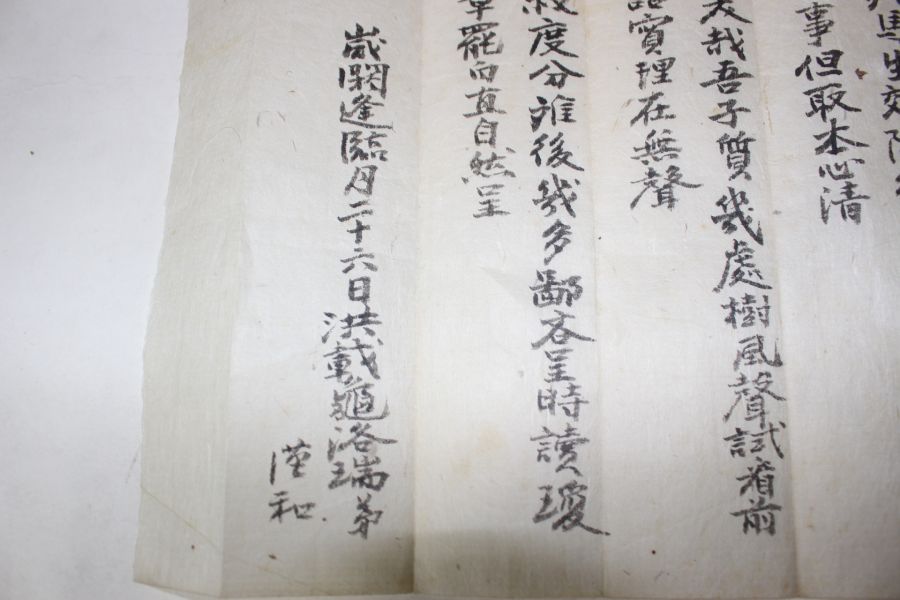 馬生郊
事但取本心清
哉吾子質幾處樹風聲試看前
實理在無聲
度分離後幾多鄙吝呈時讀瓊
章罷向直自然呈
歲閼逢臨月二十六日洪載龜洛瑞弟
謹和